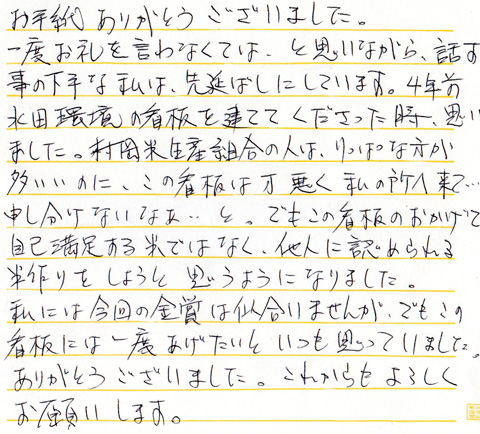 お手紙ありがとうございました。
一度お礼を言わなくては、と思いながら、話す
事の下手な私は、先延ばしにしています。4年前
水田環境の看板を建ててくださった時、思い
ました。村岡米生産組合の人は、りっぱな方が
多いいのに、この看板は 悪く私の所へ来て…
申し分けないなぁ…と。でもこの看板のおかげで
自己満足する米ではなく、他人に認められる
米作りをしようと思うようになりました。
私には今回の金賞は似合いませんが、でもこの
看板には一度あげたいといつも思っていました。
ありがとうございました。これからもよろしく
お願いします。